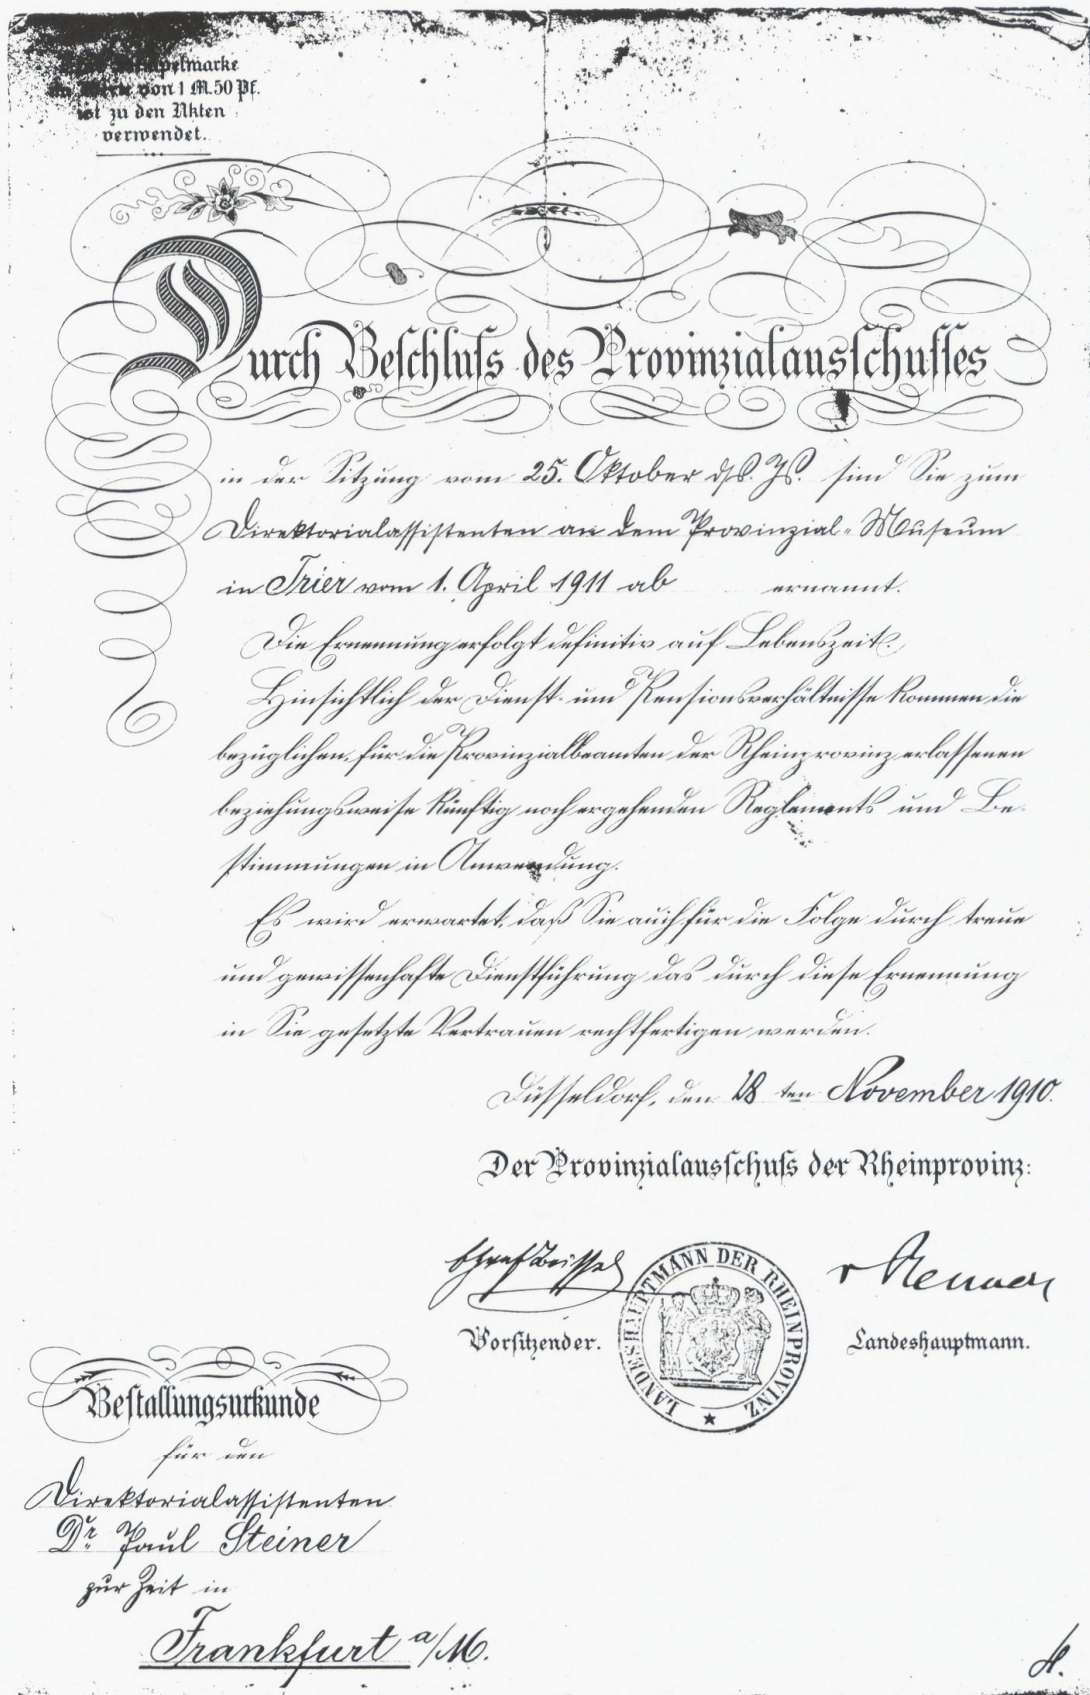 Stempelmarke
von 1 M. 50 Pf.
ist zu den Akten
verwendet.
Durch Beschluſs des Provinzialausſchuſſes
in der Sitzung vom 25. Oktober dſs. Js. sind Sie zum
Direktorialassistenten an dem Provinzial-Museum
in Trier vom 1. April 1911 ab ernannt.
Die Ernennung erfolgt definitiv auf Lebenszeit.
Hinsichtlich der Dienst- und Pensionsverhältnisse kommen die
bezüglichen, für die Provinzialbeamten der Rheinprovinz erlassenen
beziehungsweise künftig noch ergehenden Reglements und Be-
stimmungen in Anwendung.
Es wird erwartet, daß Sie auch für die Folge durch treue
und gewissenhafte Dienstführung das durch diese Ernennung
in Sie gesetzte Vertrauen rechtfertigen werden.
Düsseldorf, den 18 ten November 1910.
Der Provinzialausſchuſs der Rheinprovinz:
Graf Beissel
v Renvers
LANDESHAUPTMANN DER RHEINPROVINZ
Vorſitzender.
Landeshauptmann.
Beſtallungsurkunde
für den
Direktorialassistenten
Dr. Paul Steiner
zur Zeit in
Frankfurt a/M.